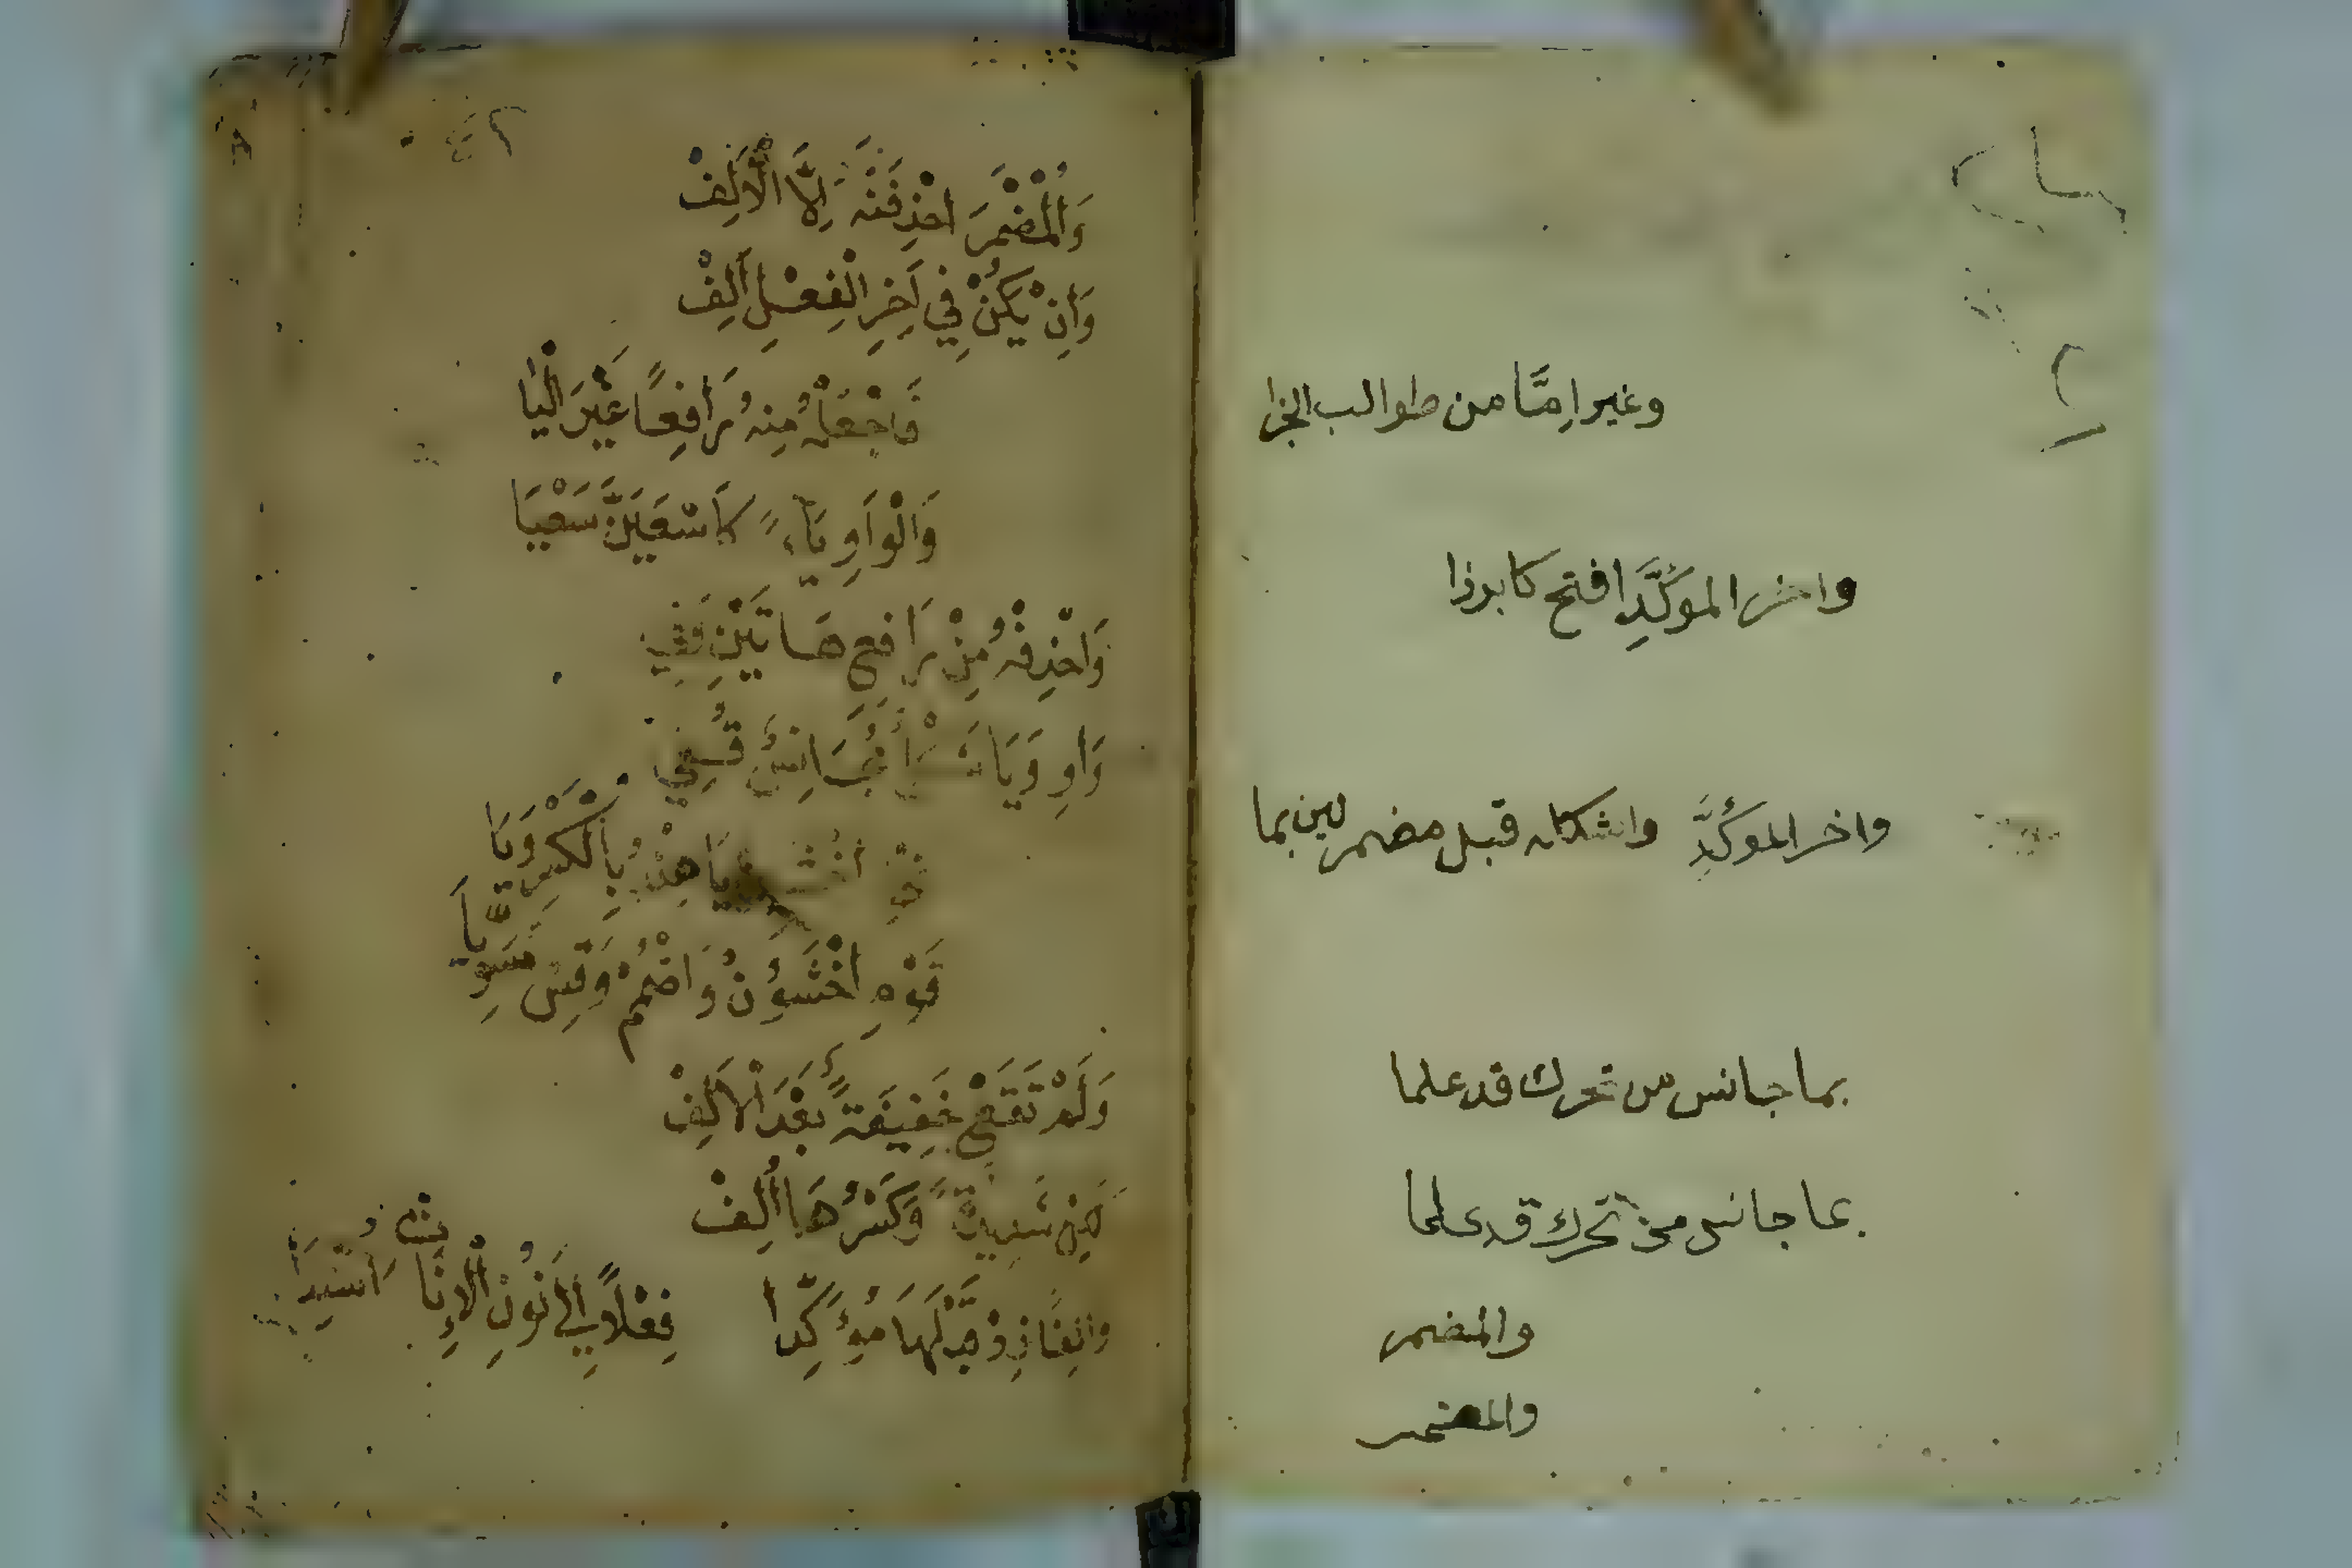 وغير اِمَّا من طوالب الجزا
واخر المؤكَّدِ افتح كابرزا
واخر المؤكَّدِ واشكله قبل مضمر لين بما
بما جانس من تحرك قد علما
بما جانس من تحرك قد علما
والمضمر
والمضمر
وَالْمُضْمَرَ احْذِفَنَّهُ اِلَّا الْاَلِفْ
وَاِنْ يَكُنْ فِي اَخِرِ الْفِعْلِ اَلِفْ
فَاجْعَلْهُ مِنْهُ رَافِعًا غَيْرَ الْيَا
وَالْوَاوِ يَاءً كَاسْعَيَنَّ سَعْيَا
وَاحْذِفْهُ مِنْ رَافِعِ هَاتَيْنِ وَفِي
وَاوٍ وَيَا شَكْلٌ مُجَانِسٌ قُفِي
نَحْوُ اخْشَيِنْ يَا هِنْدُ بِالْكَسْرِ وَيَا
قَوْمِ اخْشَوُنْ وَاضْمُمْ وَقِسْ مُسَوِّيَا
وَلَمْ تَقَعْ خَفِيفَةٌ بَعْدَ الْاَلِفْ
لَكِنْ شَدِيدَةٌ وَكَسْرُهَا اُلِفْ
وَاَلِفًا زِدْ قَبْلَهَا مُؤَكِّدَا فِعْلًا اِلَى نُونِ الْاِنَاثِ اُسْنِدَا